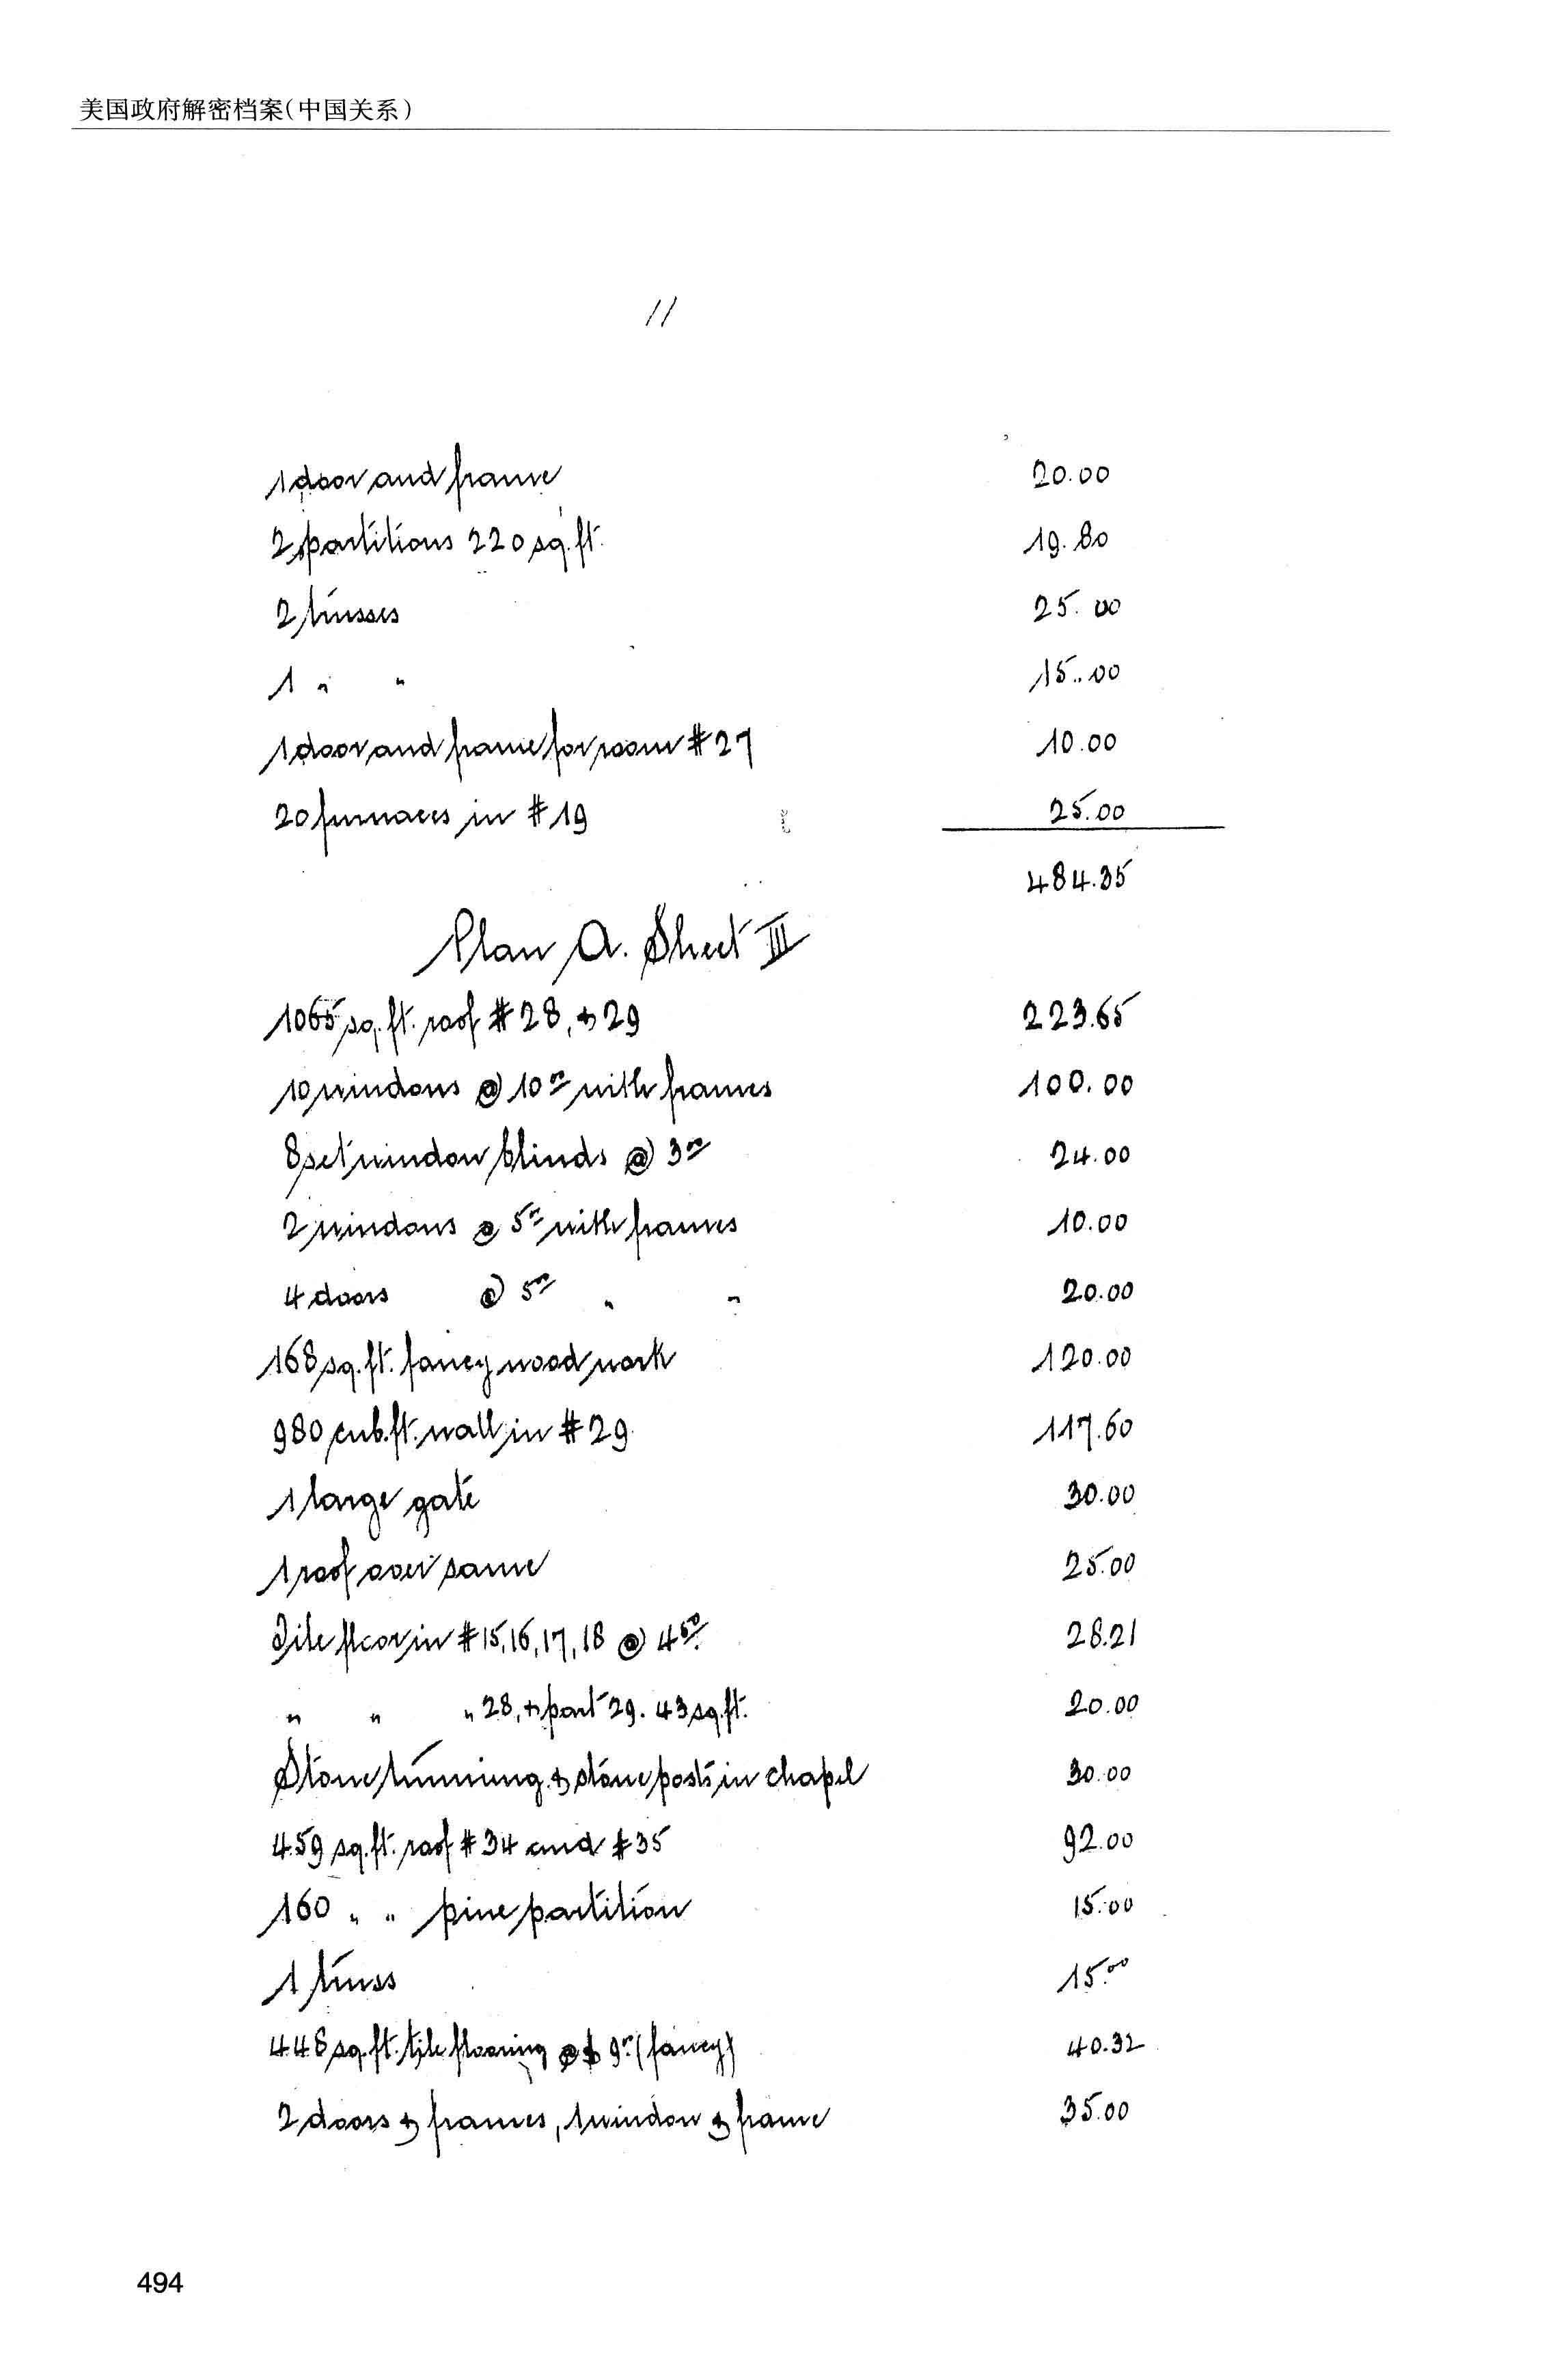 美国政府解密档案(中国关系)
11
1 door and frame 20.00
2 partitions 220 sq. ft. 19.80
2 trusses 25.00
1 " " 15.00
1 door and frame for room #27 10.00
20 furnaces in #19 25.00
484.35
Plan A. Sheet III
1065 sq. ft. roof #28, & 29 223.65
10 windows @ 10 00 with frames 100.00
8 set window blinds @ 3 00 24.00
2 windows @ 5 00 with frames 10.00
4 doors @ 5 00 " " 20.00
168 sq. ft. fancy wood work 120.00
980 cub. ft. wall in #29 117.60
1 large gate 30.00
1 roof over same 25.00
Tile floor in #15, 16, 17, 18 @ 4 50 28.21
" " " 28, & part 29. 43 sq. ft. 20.00
Stone trimming & stone posts in chapel 30.00
459 sq. ft. roof #34 and #35 92.00
160 " " pine partition 15.00
1 truss 15.00
448 sq. ft. tile flooring @ $ 9 00 (fancy) 40.32
2 doors & frames, 1 window & frame 35.00
494